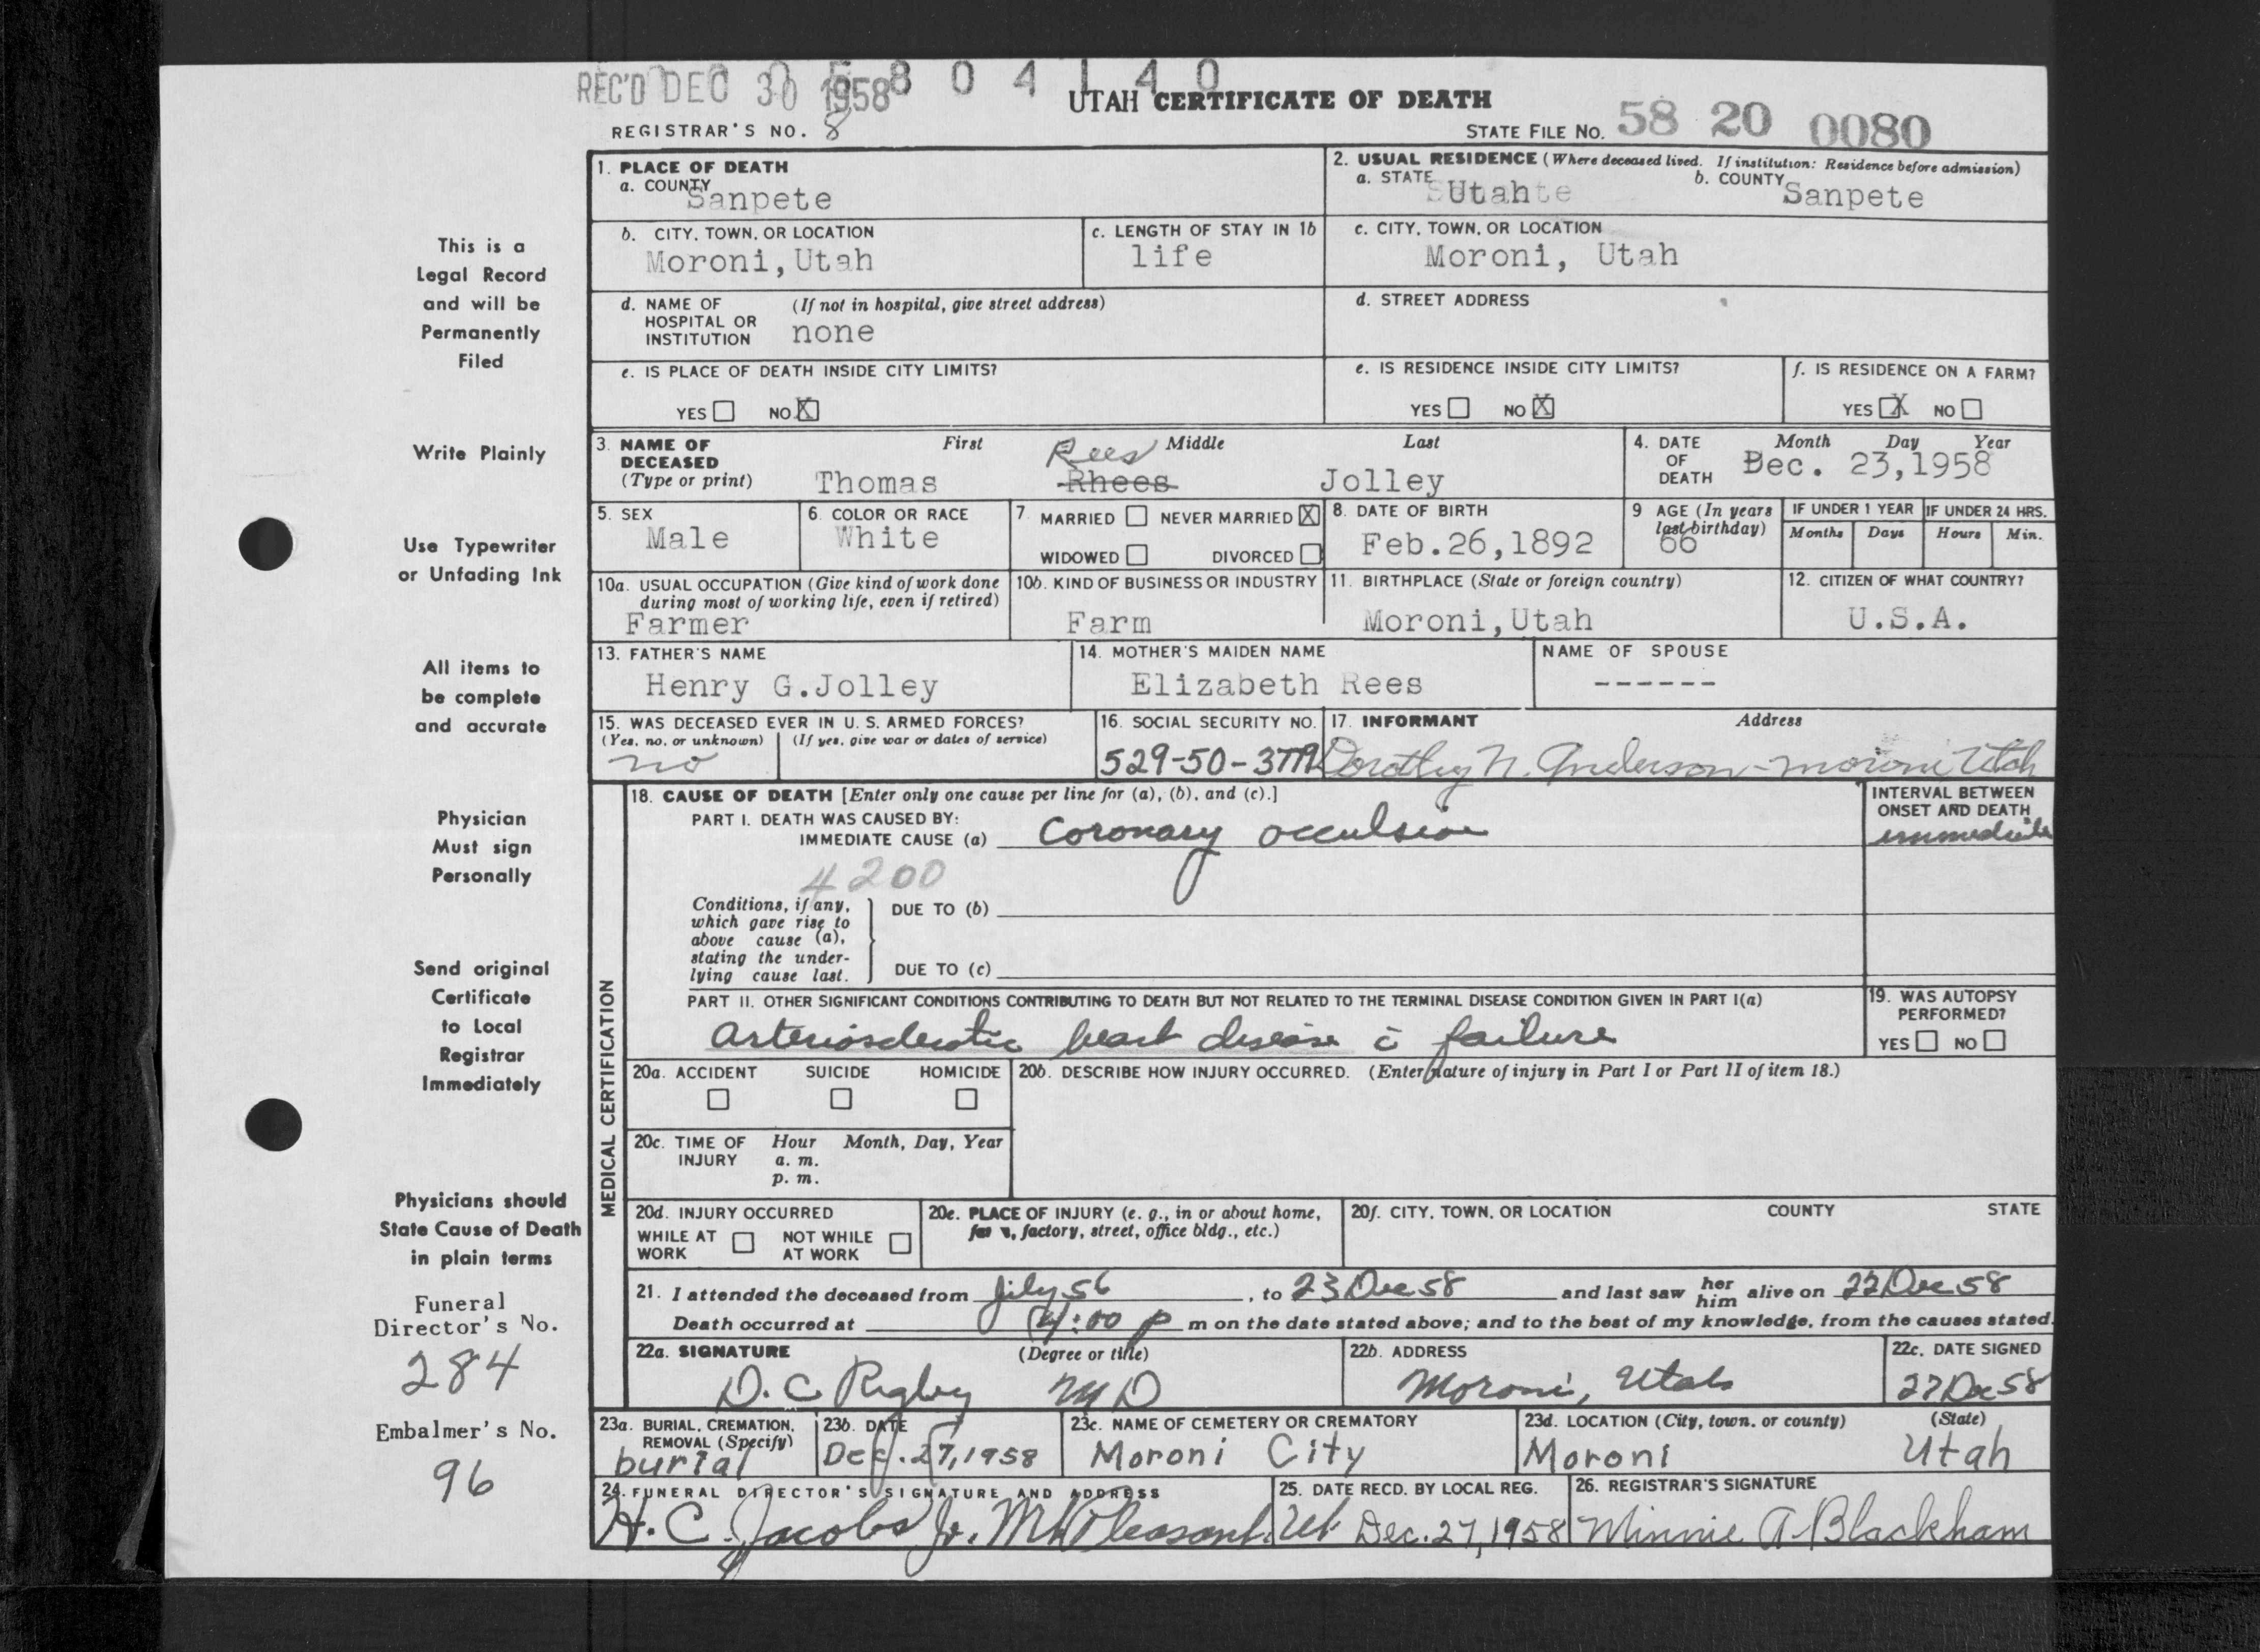 REC'D DEC 30 1958
5 8 0 4 1 4 0
UTAH CERTIFICATE OF DEATH
REGISTRAR'S NO. 8
STATE FILE NO. 58 20 0080
This is a
Legal Record
and will be
Permanently
Filed
Write Plainly
Use Typewriter
or Unfading Ink
All items to
be complete
and accurate
Physician
Must sign
Personally
Send original
Certificate
to Local
Registrar
Immediately
Physicians should
State Cause of Death
in plain terms
Funeral
Director's No.
284
Embalmer's No.
96
1. PLACE OF DEATH
a. COUNTY
Sanpete
2. USUAL RESIDENCE (Where deceased lived. If institution: Residence before admission)
a. STATE Utah b. COUNTY Sanpete
b. CITY, TOWN, OR LOCATION
Moroni, Utah
c. LENGTH OF STAY IN 1b
life
c. CITY, TOWN, OR LOCATION
Moroni, Utah
d. NAME OF (If not in hospital, give street address)
HOSPITAL OR
INSTITUTION none
d. STREET ADDRESS
e. IS PLACE OF DEATH INSIDE CITY LIMITS?
YES NO X
e. IS RESIDENCE INSIDE CITY LIMITS?
YES NO X
f. IS RESIDENCE ON A FARM?
YES X NO
3. NAME OF First Middle Last
DECEASED Rees
(Type or print) Thomas Rhees Jolley
4. DATE Month Day Year
OF Dec. 23,1958
DEATH
5. SEX
Male
6. COLOR OR RACE
White
7. MARRIED NEVER MARRIED X
WIDOWED DIVORCED
8. DATE OF BIRTH
Feb.26,1892
9 AGE (In years
last birthday)
66
IF UNDER 1 YEAR IF UNDER 24 HRS.
Months Days Hours Min.
10a. USUAL OCCUPATION (Give kind of work done
during most of working life, even if retired)
Farmer
10b. KIND OF BUSINESS OR INDUSTRY
Farm
11. BIRTHPLACE (State or foreign country)
Moroni, Utah
12. CITIZEN OF WHAT COUNTRY?
U.S.A.
13. FATHER'S NAME
Henry G.Jolley
14. MOTHER'S MAIDEN NAME
Elizabeth Rees
NAME OF SPOUSE
------
15. WAS DECEASED EVER IN U. S. ARMED FORCES?
(Yes, no, or unknown) (If yes, give war or dates of service)
no
16. SOCIAL SECURITY NO.
529-50-
17. INFORMANT Address
Dorothy N. Anderson - Moroni Utah
MEDICAL CERTIFICATION
18. CAUSE OF DEATH [Enter only one cause per line for (a), (b), and (c).]
PART I. DEATH WAS CAUSED BY:
IMMEDIATE CAUSE (a) Coronary occulsion
INTERVAL BETWEEN
ONSET AND DEATH
immediate
4200
Conditions, if any,
which gave rise to
above cause (a),
stating the under-
lying cause last.
DUE TO (b)
DUE TO (c)
PART II. OTHER SIGNIFICANT CONDITIONS CONTRIBUTING TO DEATH BUT NOT RELATED TO THE TERMINAL DISEASE CONDITION GIVEN IN PART I(a)
Arteriosclerotic heart disease c̄ failure
19. WAS AUTOPSY
PERFORMED?
YES NO
20a. ACCIDENT SUICIDE HOMICIDE
20b. DESCRIBE HOW INJURY OCCURRED. (Enter nature of injury in Part I or Part II of item 18.)
20c. TIME OF Hour Month, Day, Year
INJURY a. m.
p. m.
20d. INJURY OCCURRED
WHILE AT NOT WHILE
WORK AT WORK
20e. PLACE OF INJURY (e. g., in or about home,
factory, street, office bldg., etc.)
20f. CITY, TOWN, OR LOCATION COUNTY STATE
21. I attended the deceased from July 56, to 23 Dec 58 and last saw her him alive on 22 Dec 58
Death occurred at 4:00 p m on the date stated above; and to the best of my knowledge, from the causes stated.
22a. SIGNATURE (Degree or title)
D. C. Rigby MD
22b. ADDRESS
Moroni, Utah
22c. DATE SIGNED
27 Dec 58
23a. BURIAL, CREMATION,
REMOVAL (Specify)
burial
23b. DATE
Dec. 27, 1958
23c. NAME OF CEMETERY OR CREMATORY
Moroni City
23d. LOCATION (City, town, or county) (State)
Moroni Utah
24. FUNERAL DIRECTOR'S SIGNATURE AND ADDRESS
H. C. Jacobs Jr. Mt. Pleasant, Ut.
25. DATE RECD. BY LOCAL REG.
Dec. 27, 1958
26. REGISTRAR'S SIGNATURE
Minnie A. Blackham